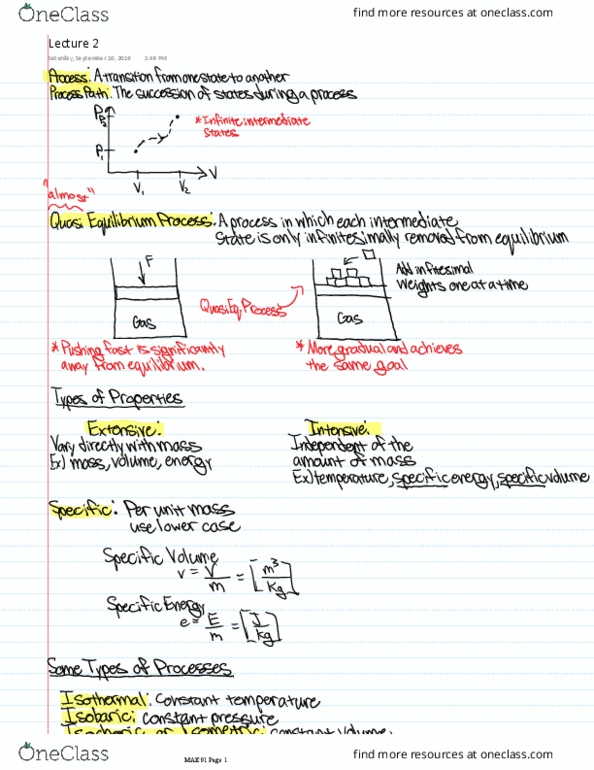 OneClass find more resources at oneclass.com
Lecture 2
Saturday, September 20, 2029 1:49 PM
Process: A transition from one state to another
Process Path: The succession of states during a process
P
P2
P1
V1 V2 V
* Infinite intermediate
states
"almost"
Quasi Equilibrium Process: A process in which each intermediate
state is only infinitesimally removed from equilibrium
F
Gas
Quasi Eq. Process
Gas
Add infitesimal
weights one at a time
* Pushing fast is significantly
away from equilibrium.
* More gradual and achieves
the same goal
Types of Properties
Extensive:
Vary directly with mass
Ex) mass, volume, energy
Intensive:
Independent of the
amount of mass
Ex) temperature, specific energy, specific volume
Specific: Per unit mass
use lower case
Specific Volume
v = V/m = [m³/kg]
Specific Energy
e = E/m = [J/kg]
Some Types of Processes
Isothermal: Constant temperature
Isobaric: constant pressure
Isochoric or Isometric: constant volume.
OneClass find more resources at oneclass.com
MAE 91 Page 1